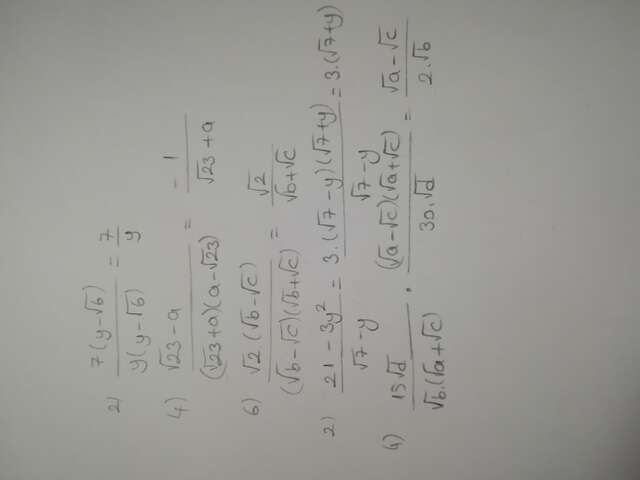 2) 7(y-√b) / y(y-√b) = 7/y
4) √23-a / (√23+a)(a-√23) = - 1/(√23+a)
6) √2.(√b-√c) / (√b-√c)(√b+√c) = √2/(√b+√c)
2) 21-3y² / √7-y = 3.(√7-y)(√7+y) / √7-y = 3.(√7+y)
4) 15√d / √b.(√a+√c) . (√a-√c)(√a+√c) / 30.√d = √a-√c / 2.√b